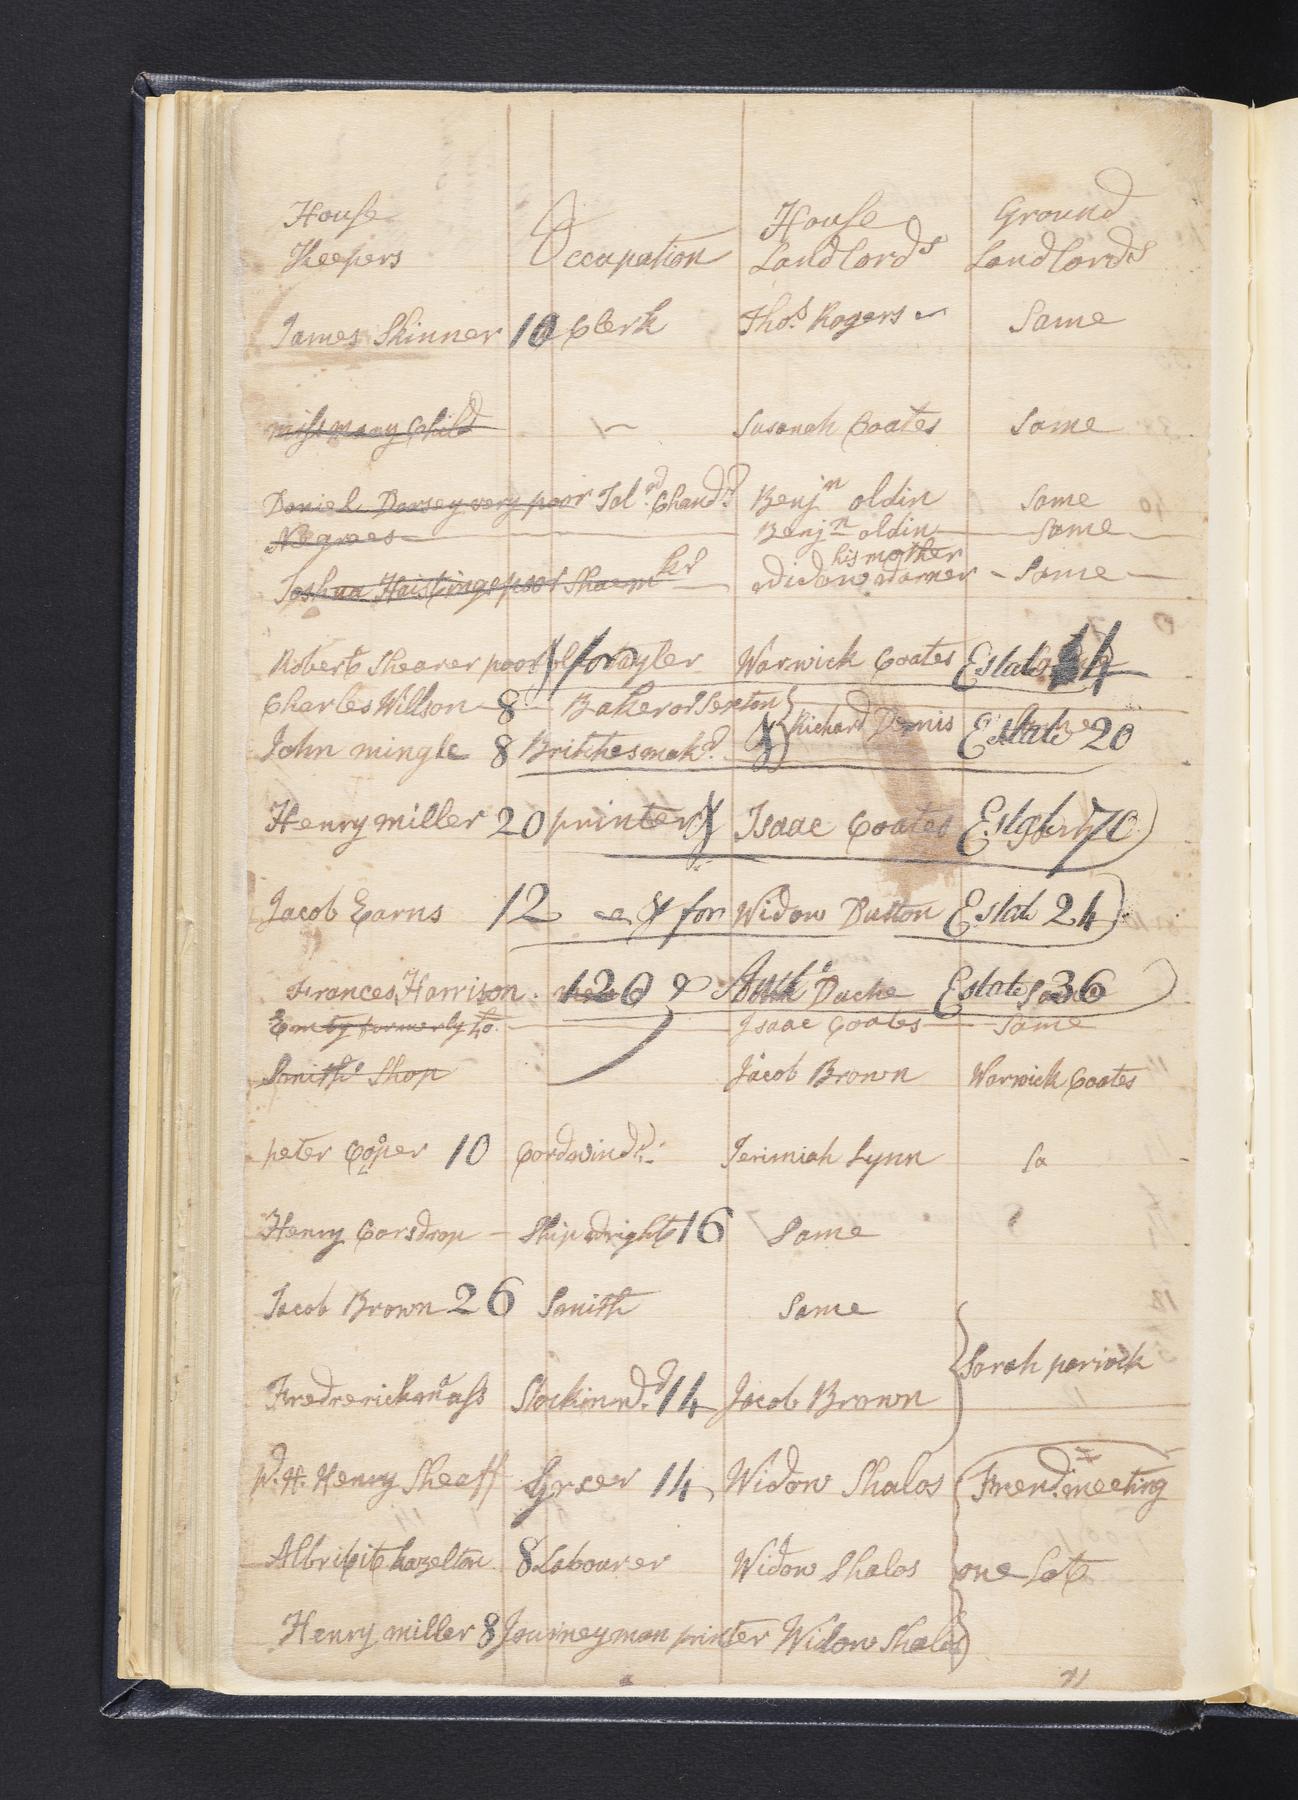 House House Ground
Keepers Occupation Landlords Landlords
James Skinner 10 Clerk Thos. Rogers Same
miss mary Child Susanah Coates Same
Daniel Dorsey very poor Tal.w Chandr. Benjn oldin Some
Negroes Benjn oldin Same
his mother
Joshua Haistings poor Shoemkr Widow warner - Same
Robert Shearer poor for Warwick Coates Estate 14
Charles Willson 8 Baker or Sexton
John mingle 8 Britchesmakr. & Richard Dennis Estate 20
Henry miller 20 printer & Isaac Coates Estate 70
Jacob Earns 12 & for Widow Dutton Estate 24
Frances Harrison 120 & Anth Duche Estate 36
Emty formerly to Isaac Coates Same
Smith's Shop Jacob Brown Warwick Coates
peter Cooper 10 Cordwindr. Jerimiah Lynn Sa
Henry Corsdrop - Ship wright 16 Same
Jacob Brown 26 Smith Same
Sarah parrock
Fredrerick mass Stockinwr. 14 Jacob Brown
H. Henry Sheaff Grser 14 Widow Shalos Friend.meeting
Albribit hazelton 8 Labourer Widow Shalos one Lot
Henry miller 8 Journeyman printer Widow Shalos